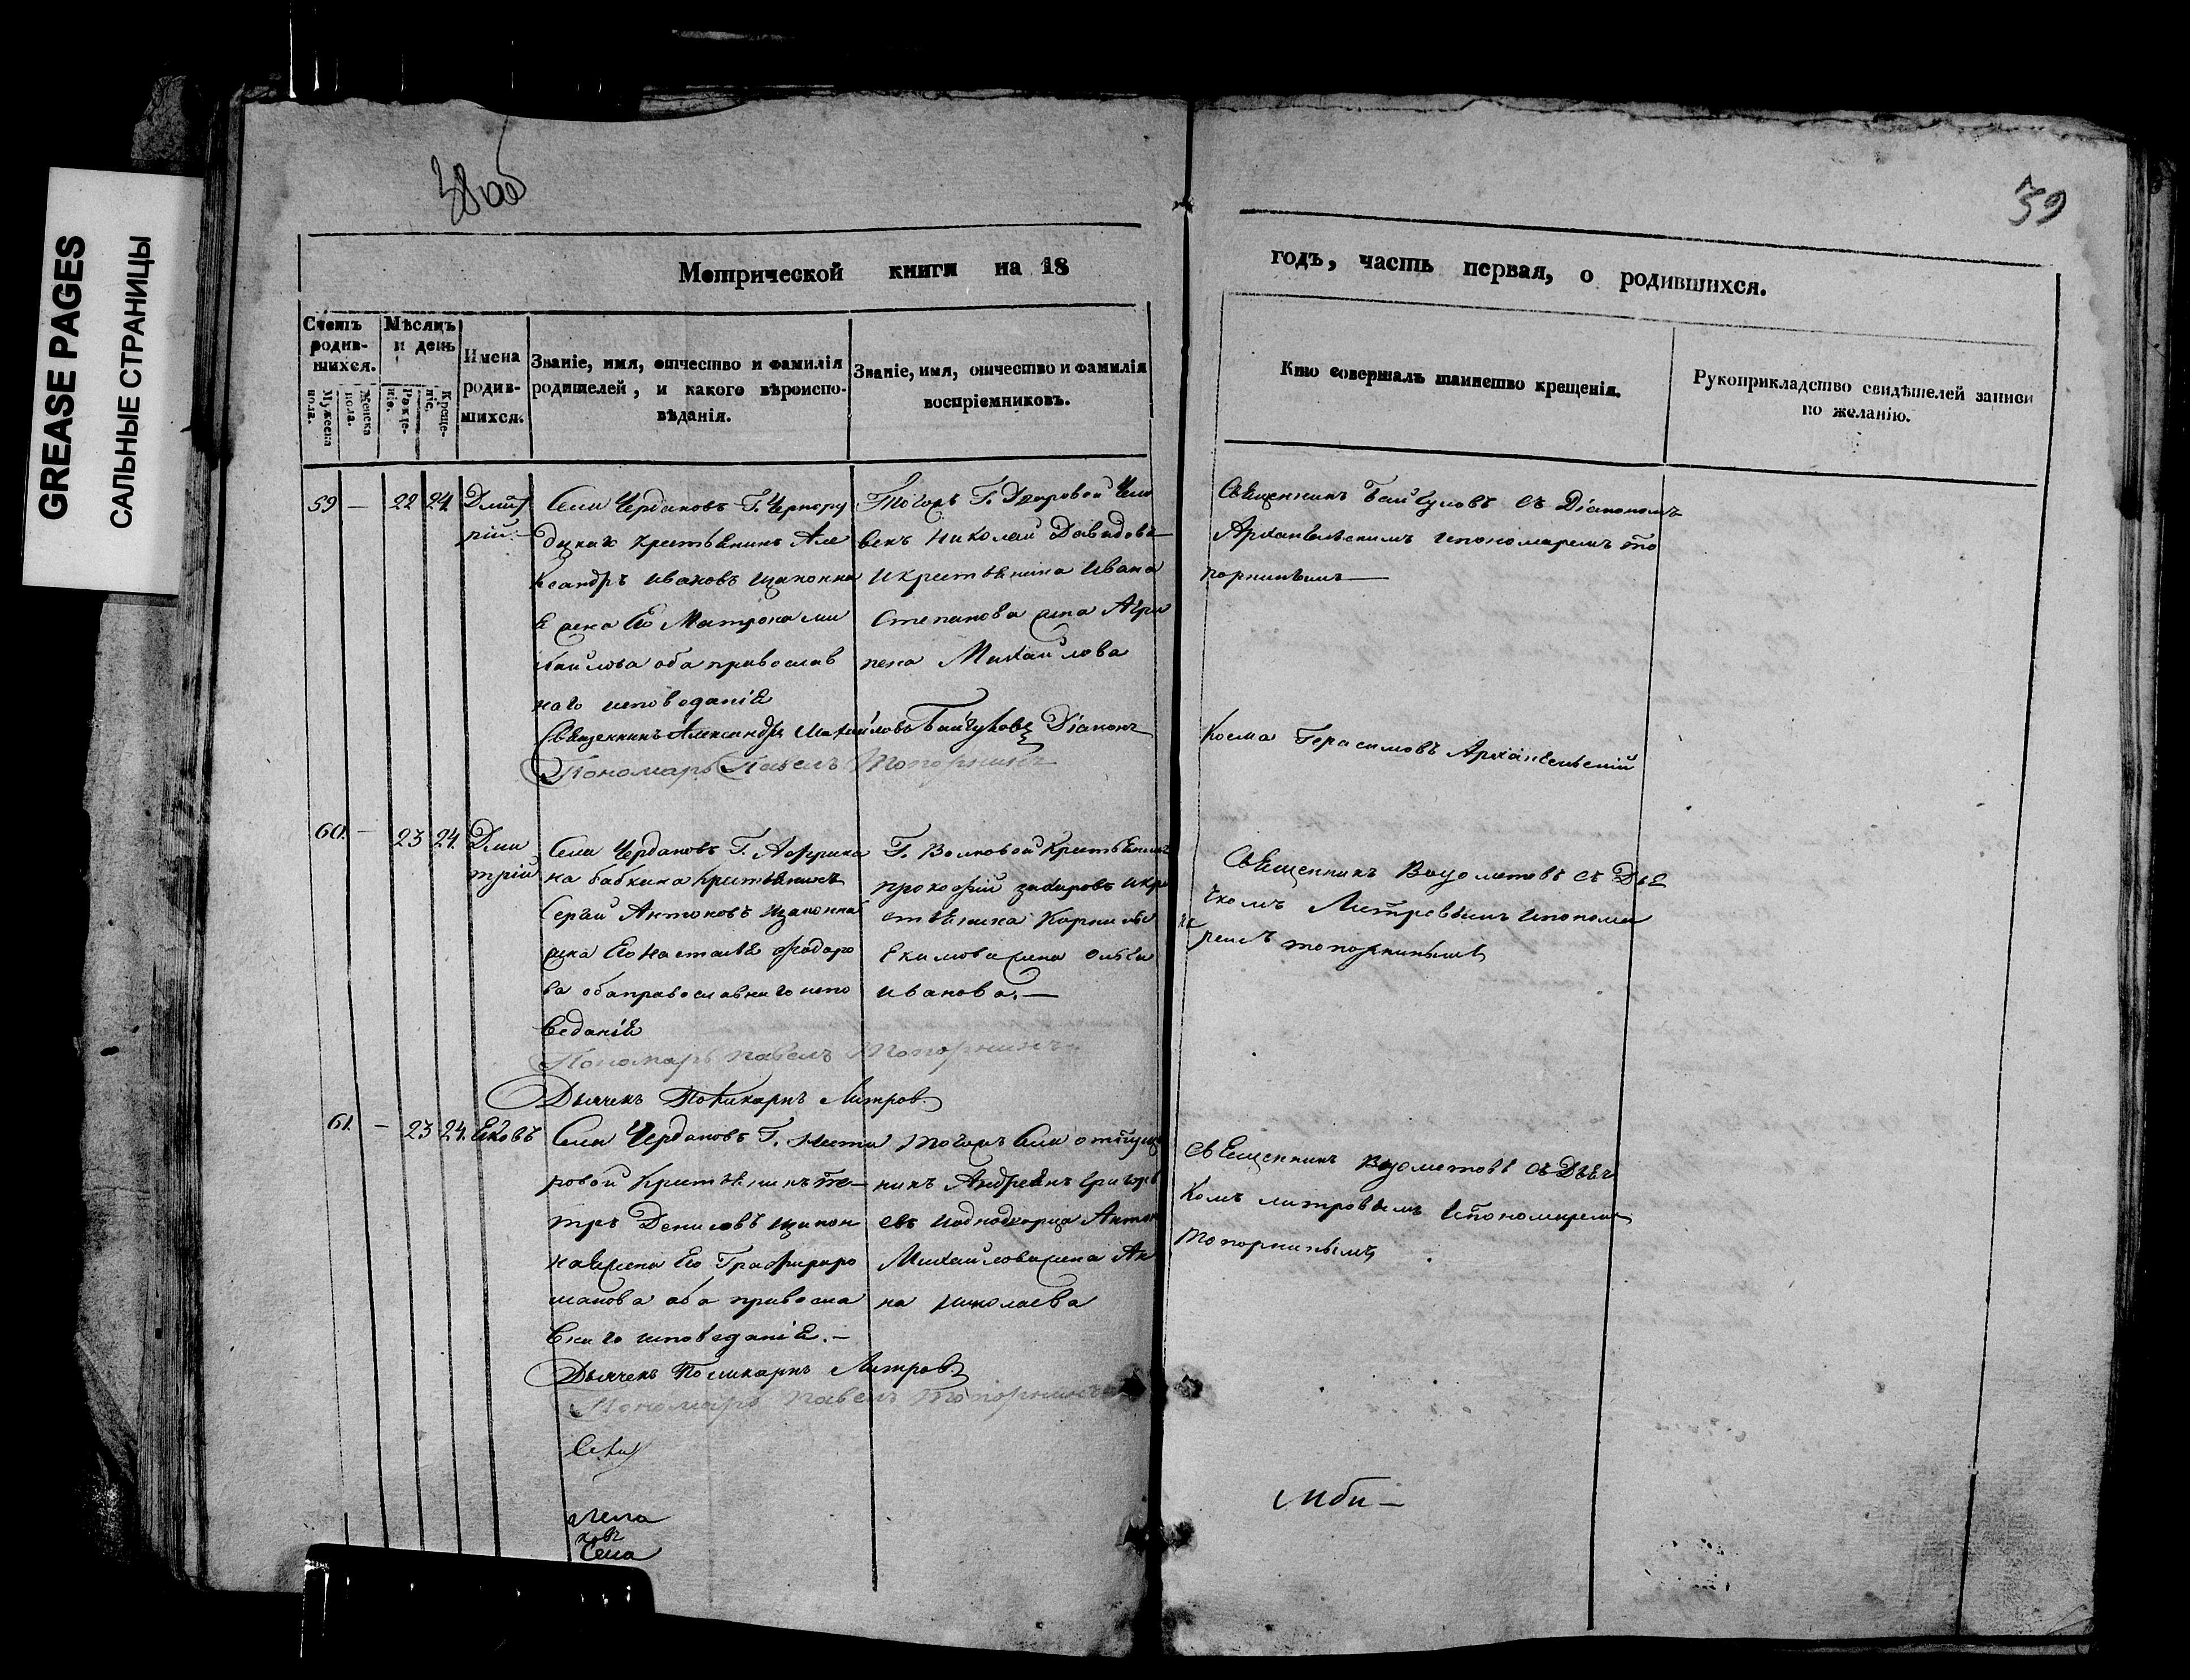 GREASE PAGES
САЛЬНЫЕ СТРАНИЦЫ
38 об
39
Метрической книги на 18
годъ, часть первая, о родившихся.
Счетъ родив-
шихся.
Мужеска пола.
Женска пола.
Мѣсяцъ
и день
Рожде-
нія.
Креще-
нія.
Имена
родив-
шихся.
Званіе, имя, отчество и фамилія
родителей, и какого вѣроиспо-
вѣданія.
Званіе, имя, отчество и фамилія
воспріемниковъ.
Кто совершалъ таинство крещенія.
Рукоприкладство свидѣтелей записи
по желанію.
59 — 22 24 Дмит
рій
Села Чердаковъ Г.
крестьянинъ Але
ксандръ Ивановъ изаконна
я жена Его Матрона Ми
хайлова оба православ
наго исповеданіе
Тогожъ Г. Дворовой Чело
векъ Николай Давидовъ
икрестьянина Ивана
Степанова жена Агри
пена Михайлова
Священникъ съ Діакономъ
Архангельскимъ ипономаремъ то
порнинымъ
Священникъ Александръ Михайловъ Діаконъ
Косма Герасимовъ Архангельскій
Пономарь Павелъ Топорнинъ
60. — 23 24. Дми
трій
Села Чердаковъ Г.
на бабкина крестьянинъ
Сергей Антоновъ изаконна
жена Его Настасья Федоро
ва оба православнаго испо
веданіе
Г. Волковой Крестьянинъ
прокофій захаровъ икре
стьянина Корнилы
Екимова жена Ольга
Иванова. —
Священникъ съ Дья
чкомъ Литровымъ ипонома
ремъ топорнинымъ
Пономарь Павелъ Топорнинъ
Дьячекъ Поликарпъ Литровъ
61. — 23 24. Ековъ
Села Чердаковъ Г.
ровой Крестьянинъ Пе
тръ Денисовъ изакон
ная жена Его
оба правосла
внаго исповеданіе. —
тогожъ Села отпущ
никъ Андреянъ Григорь
евъ иоднодворца Антона
Михайлова жена Ан
на Николаева
Священникъ съ Дьяч
комъ литровымъ ипономаремъ
топорнинымъ
Дьячекъ Поликарпъ Литровъ
Пономарь Павелъ Топорнинъ
Села